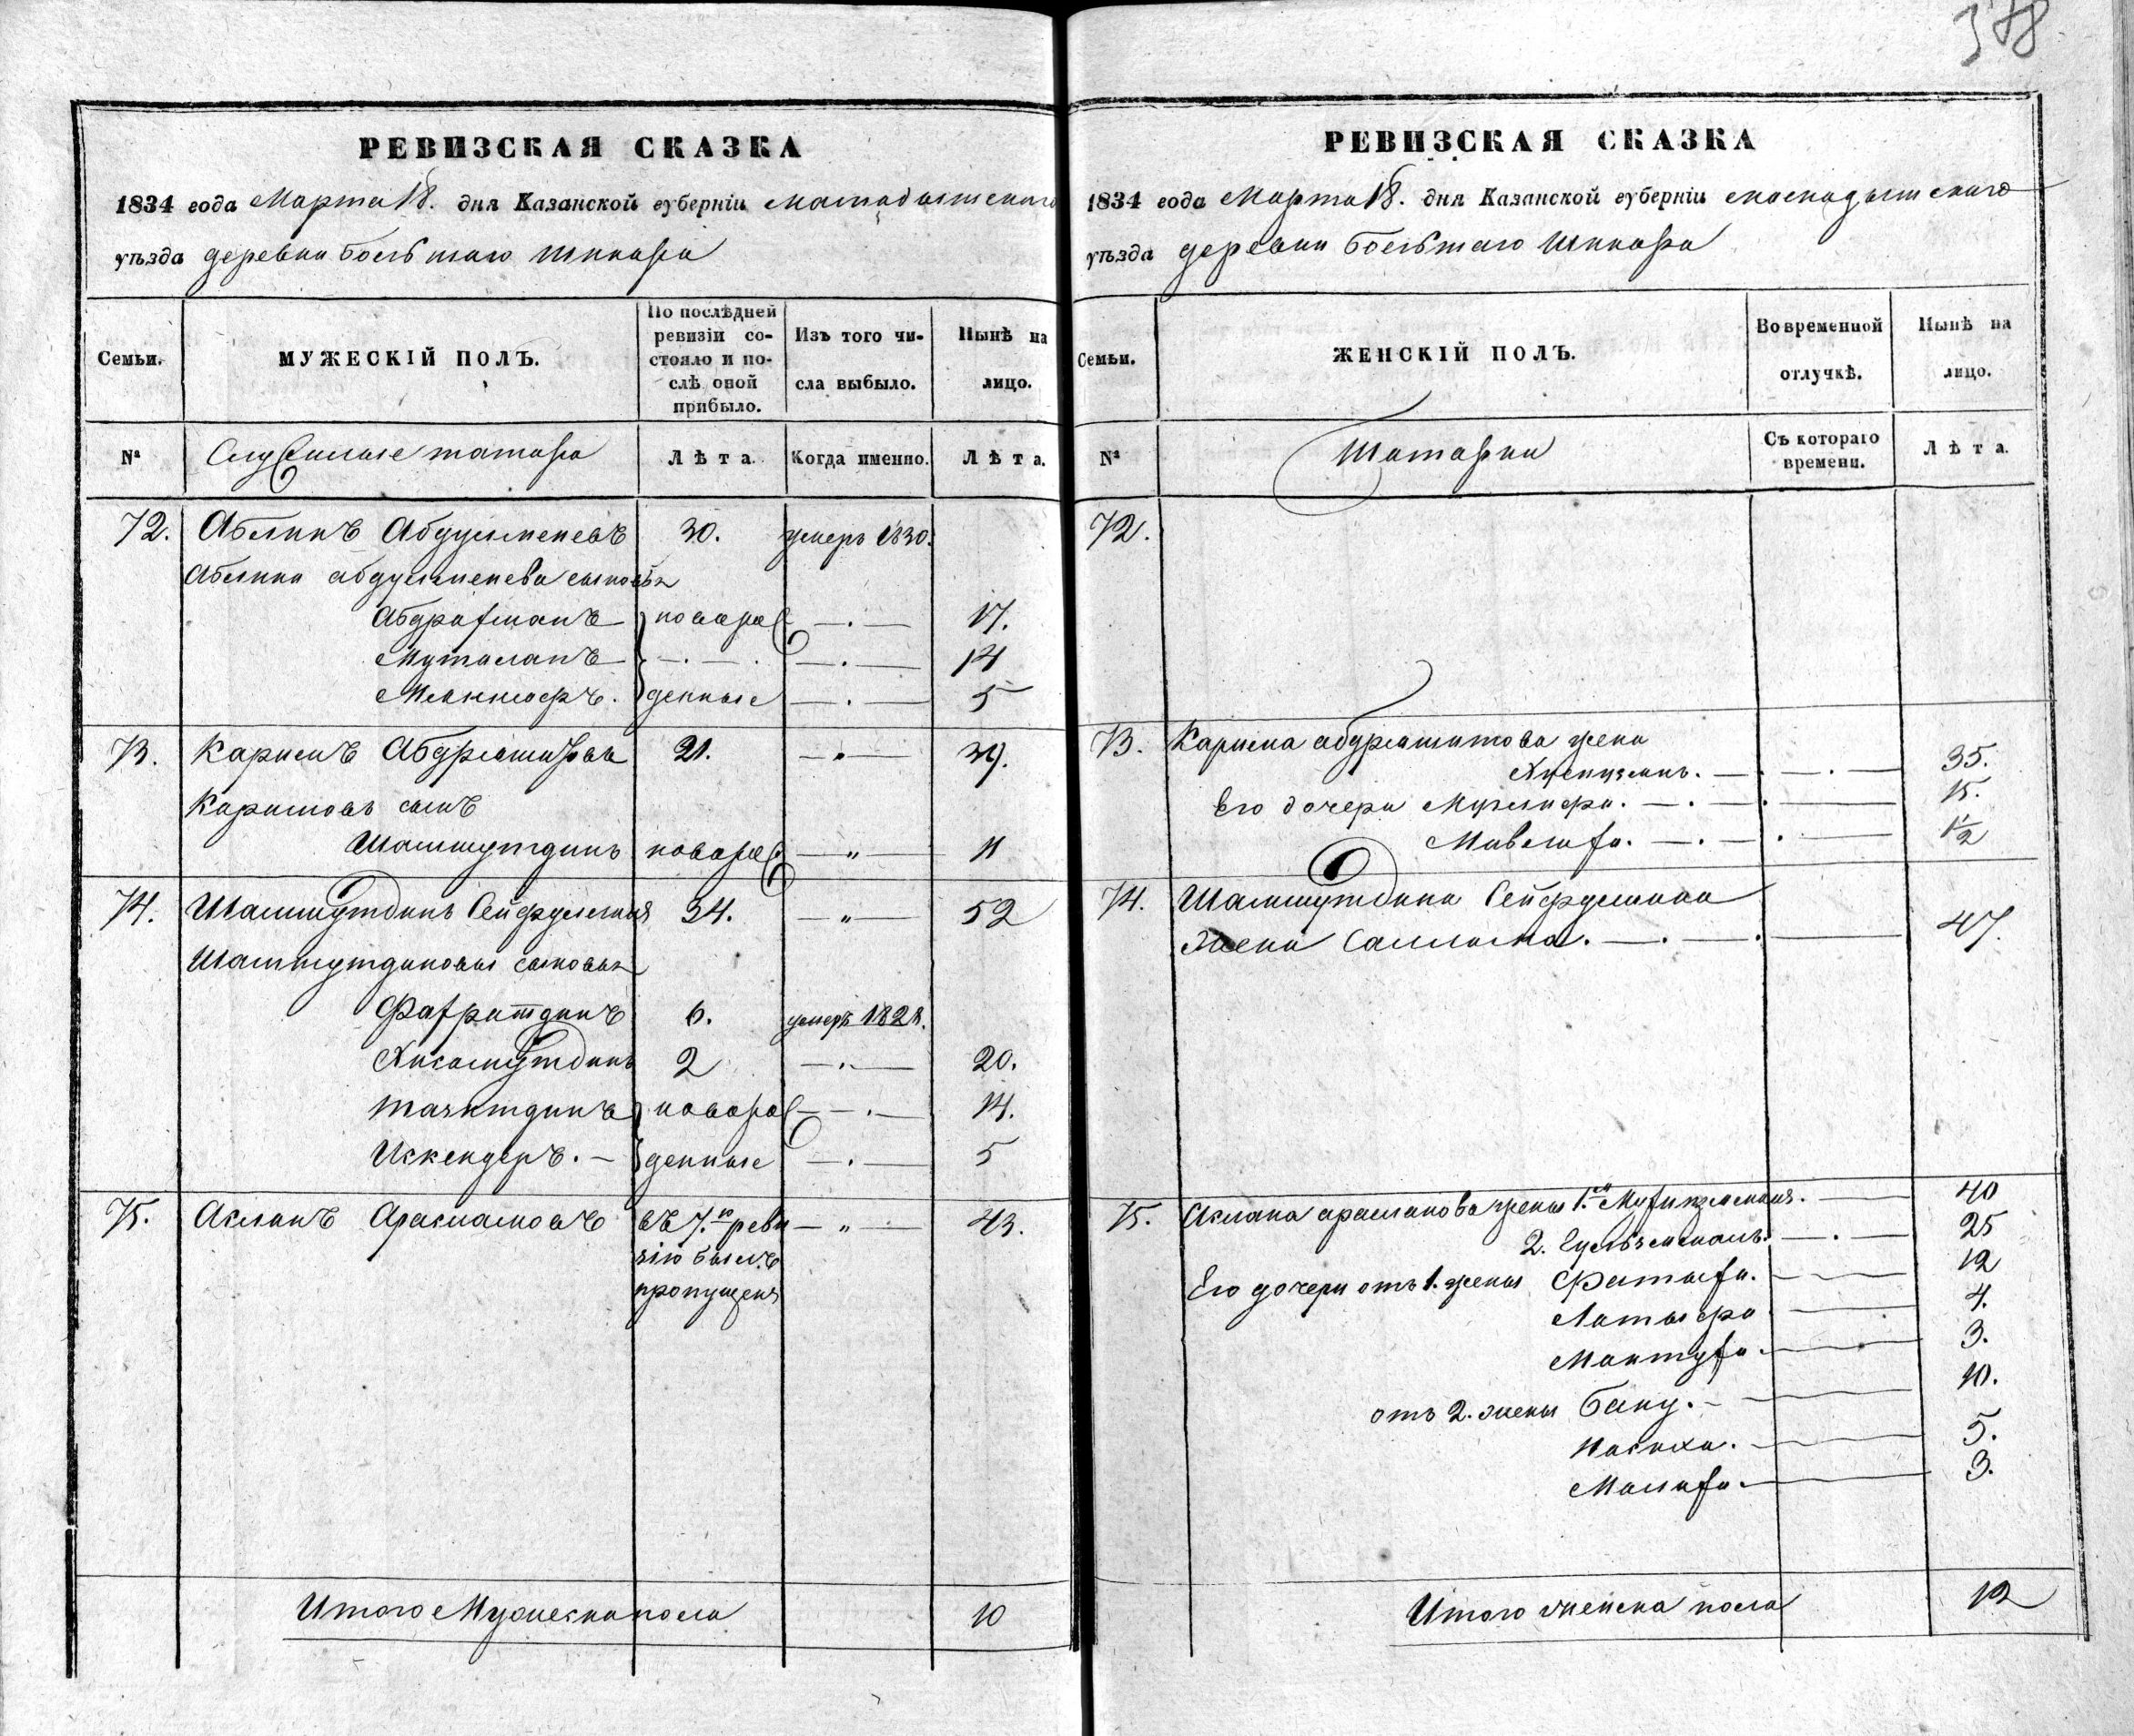 378
РЕВИЗСКАЯ СКАЗКА
1834 года Марта 18. дня Казанской губерніи мамадышскаго
уѣзда деревни большаго Шинара
Семьи.
МУЖЕСКІЙ ПОЛЪ.
По послѣдней ревизіи состояло и послѣ оной прибыло.
Изъ того числа выбыло.
Нынѣ на лицо.
№
Служилые татара
Лѣта.
Когда именно.
Лѣта.
72. Аблинъ Абдулменевъ 30. умеръ 1830.
Аблина абдулменева сыновья
Абдрахманъ новорож 17.
Муталапъ 14
денные 5
73. Каримъ 21. 39.
Каримовъ сынъ
Шамшутдинъ новорож 11
74. Шамшутдинъ Сейфулминъ 34. 52
Шамшутдиновы сыновья
Фахрутдинъ 6. умеръ 1828.
Хисамутдинъ 2 20.
тазитдинъ новорож 14.
Искендеръ. денные 5
75. Асланъ Араслановъ въ 7.ю реви 43.
зію былъ
пропущенъ
Итого Мужеска пола 10
РЕВИЗСКАЯ СКАЗКА
1834 года Марта 18. дня Казанской губерніи мамадышскаго
уѣзда деревни большаго Шинара
Семьи.
ЖЕНСКІЙ ПОЛЪ.
Во временной отлучкѣ.
Нынѣ на лицо.
№
Татарки
Съ котораго времени.
Лѣта.
72.
73. Карима абдрашитова жена
35.
Его дочери 15.
1/2
74. Шамшутдина Сейфулмина
жена 47.
75. Аслана арасланова жены 1.я 40
2. 25
Его дочери отъ 1. жены Фатыха. 12
Латыфа 4.
Мактуха. 3.
отъ 2. жены Бану. 10.
Насиха. 5.
Малиха. 3.
Итого женска пола 12